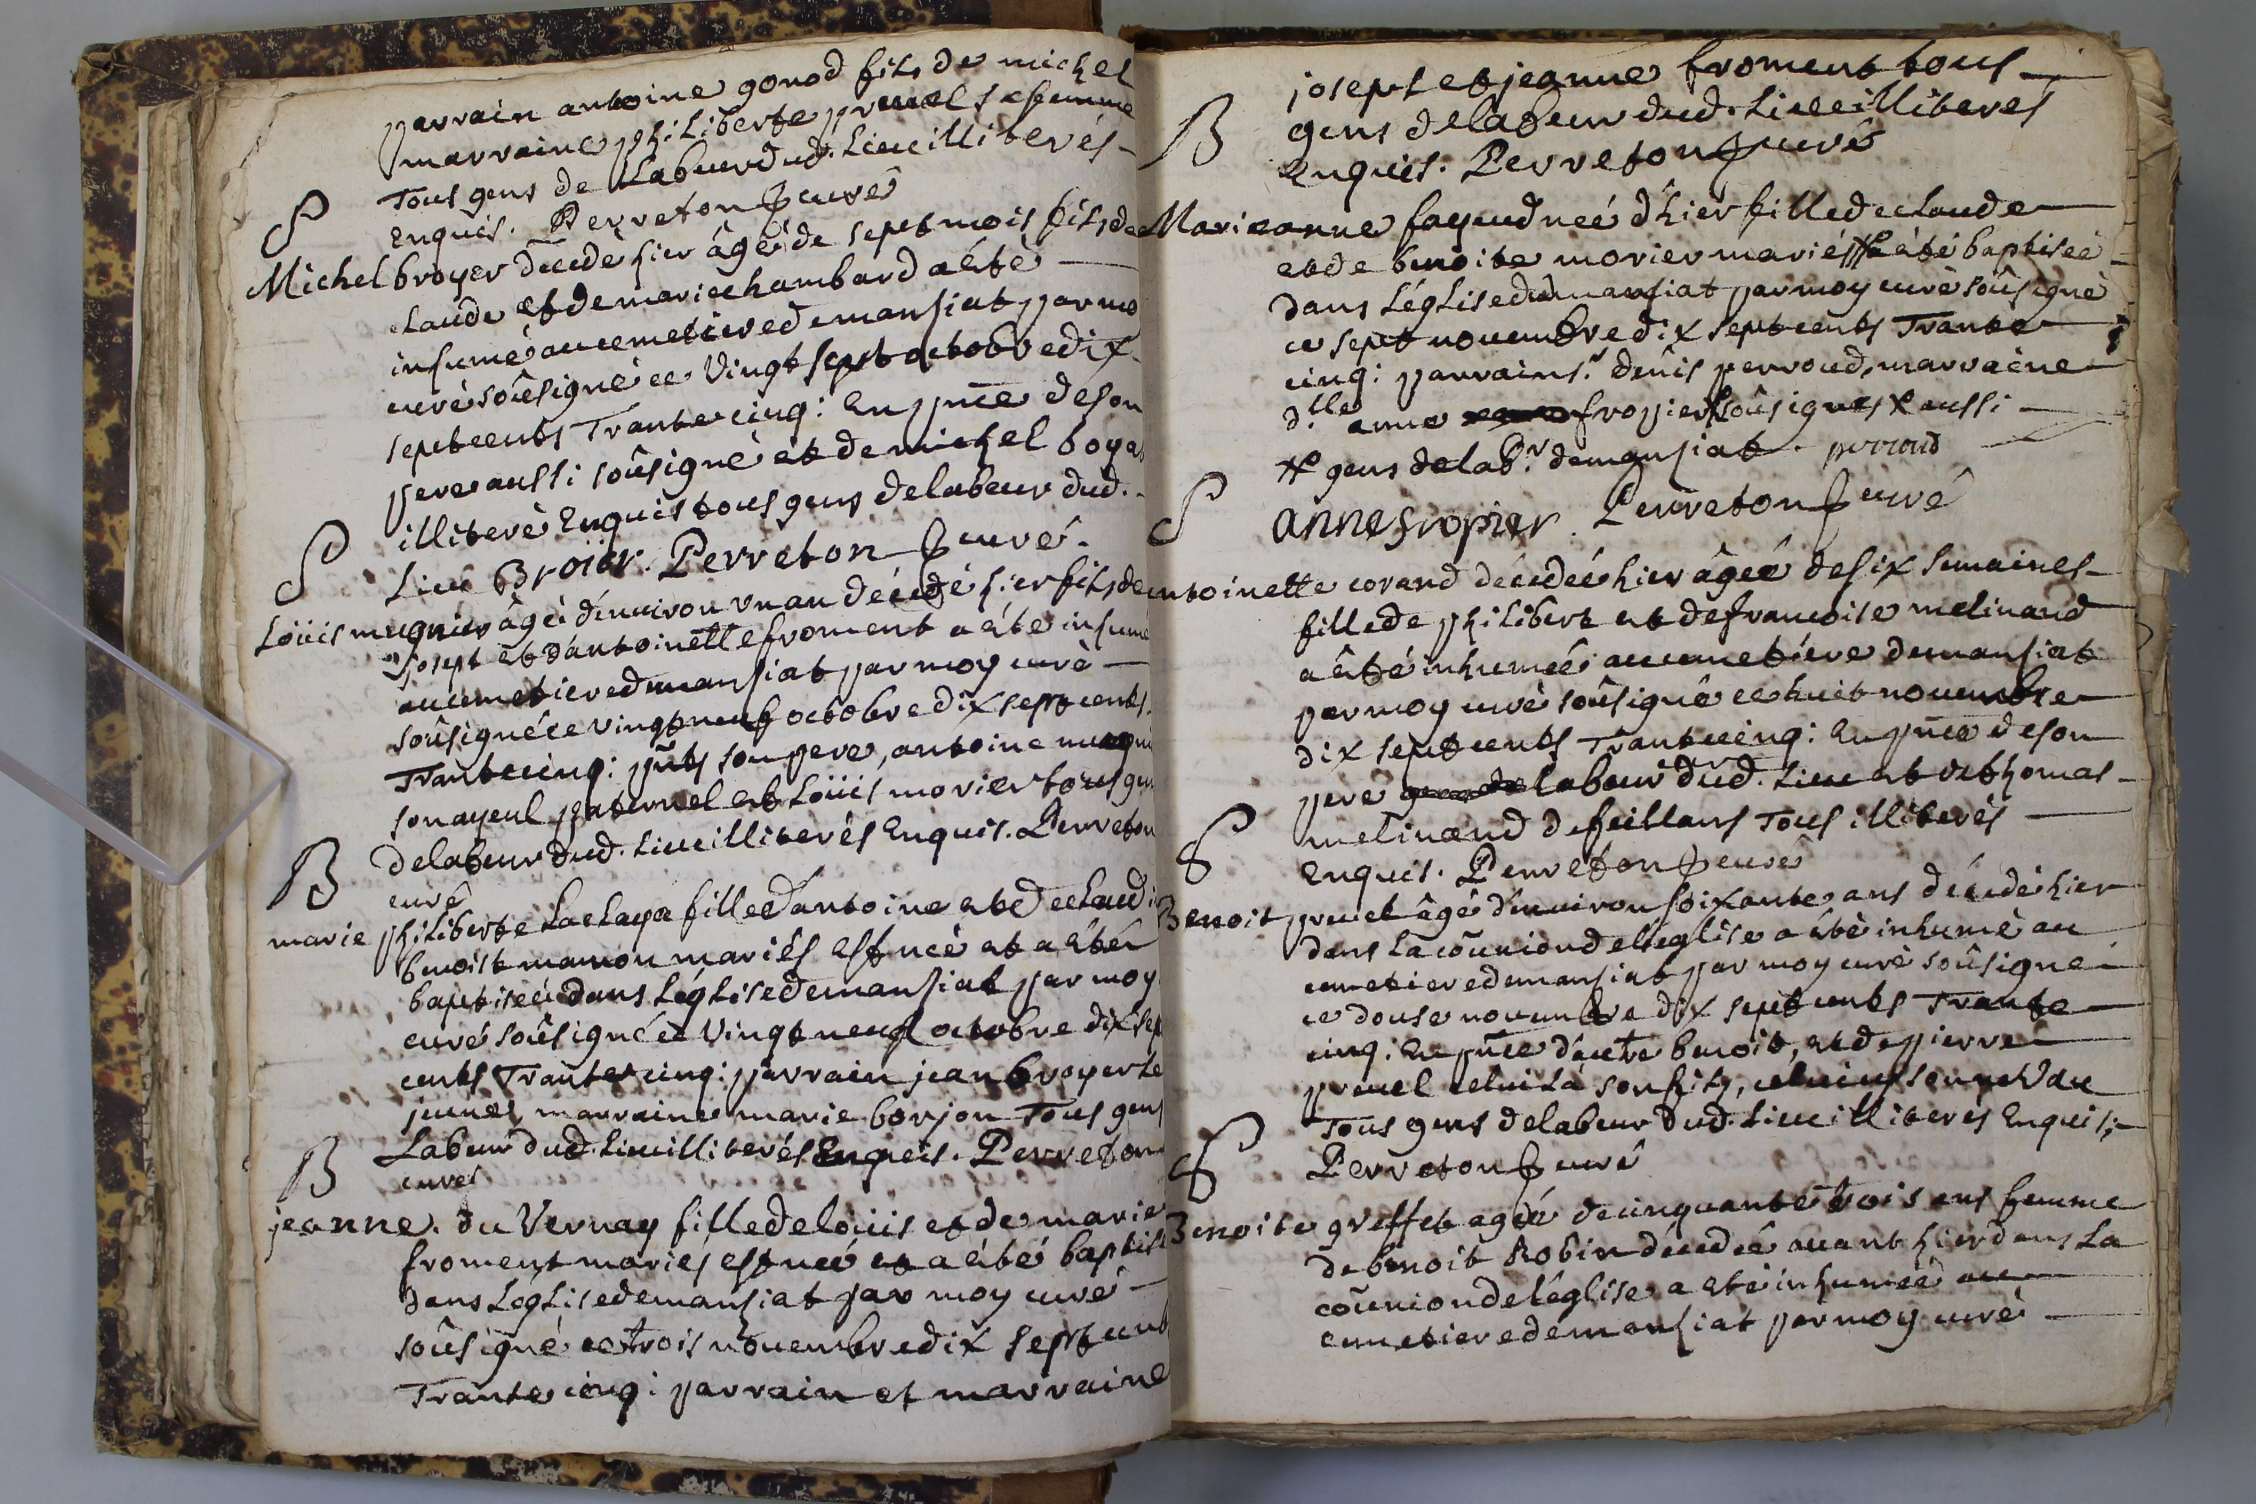 parrain antoine gonod fils de michel
marraine philiberte pruel sa femme
Tous gens de Labeur dud. Lieu illiterés
S
Enquis. Perreton curé
Michel broyer décédé hier âgé de sept mois fils de
claude et de marie chambard a été
inhumé au cemetiere de mansiat par mo
curé soûsigné ce Vingt sept octobre dix
sept cents Trante cinq: En pñce de son
pere aussi soûsigné et de michel boya
illiteré Enquis tous gens de labeur dud.
S
Lieu Broiier. Perreton curé.
Loüis mugnier âgé d'enuiron vn an décédé hier fils de
Josept et d'antoinette froment a été inhumé
au cemetiere de mansiat par moy curé
soûsigné ce vingt neuf octobre dix sept cents
Trante cinq: pñts son pere, antoine mugni
son ayeul paternel et Loüis morier tous gen
de labeur dud. Lieu illiterés Enquis. Perreton
B
curé
marie philiberte Laclaya fille d'antoine et de claudi
benoist mariés est neé et a été
baptiseé dans Léglise de mansiat par moy
curé soûsigné ce Vingt neuf octobre dix sep
cents Trante cinq: parrain jean broyer le
jeune, marraine marie borjon Tous gens
Labeur dud. Lieu illiterés Enquis. Perreton
B
curé
jeanne. du Vernay fille de loüis et de marie
froment mariés est neé et a été baptise
dans Léglise de mansiat par moy curé
soûsigné ce trois nouembre dix sept cent
Trante cinq: parrain et marraine
josept et jeanne froment tous
B
gens de labeur dud. Lieu illiterés
Enquis. Perreton curé
Marieanne fayeud neé d'hier fille de claude
et de benoite morier mariés a été baptiseé
dans Léglise de mansiat par moy curé soûsigné
ce sept nouembre dix sept cents Trante
cinq: parrain s.r denis perroud, marraine
d.lle anne fropier soûsignés aussi
gens de lab.r de mansiat. perroud
S
anne fropier. Perreton curé
antoinette corand décédeé hier âgeé de six semaines
fille de philibert et de francoise melinand
a été inhumeé au cemetiere de mansiat
par moy curé soûsigné ce huit nouembre
dix sept cents Trante cinq: En pñce de son
pere labeur dud. Lieu et de thomas
melinand de feillans Tous illiterés
S
Enquis. Perreton curé
Benoit pruel âgé d'enuiron soixante ans décédé hier
dans la coñunion de l'eglise a été inhumé au
cemetiere de mansiat par moy curé soûsigné
ce douse nouembre dix sept cents Trante
cinq: En pñce d'autre benoit, et de pierre
pruel celui la son fils, celui cy son
Tous gens de labeur dud. Lieu illiterés Enquis:
S
Perreton curé
Benoite greffet ageé de cinquante trois ans femme
de benoit Robin décédeé auant hier dans La
coñunion de l'église a été inhumeé au
cemetiere de mansiat par moy curé